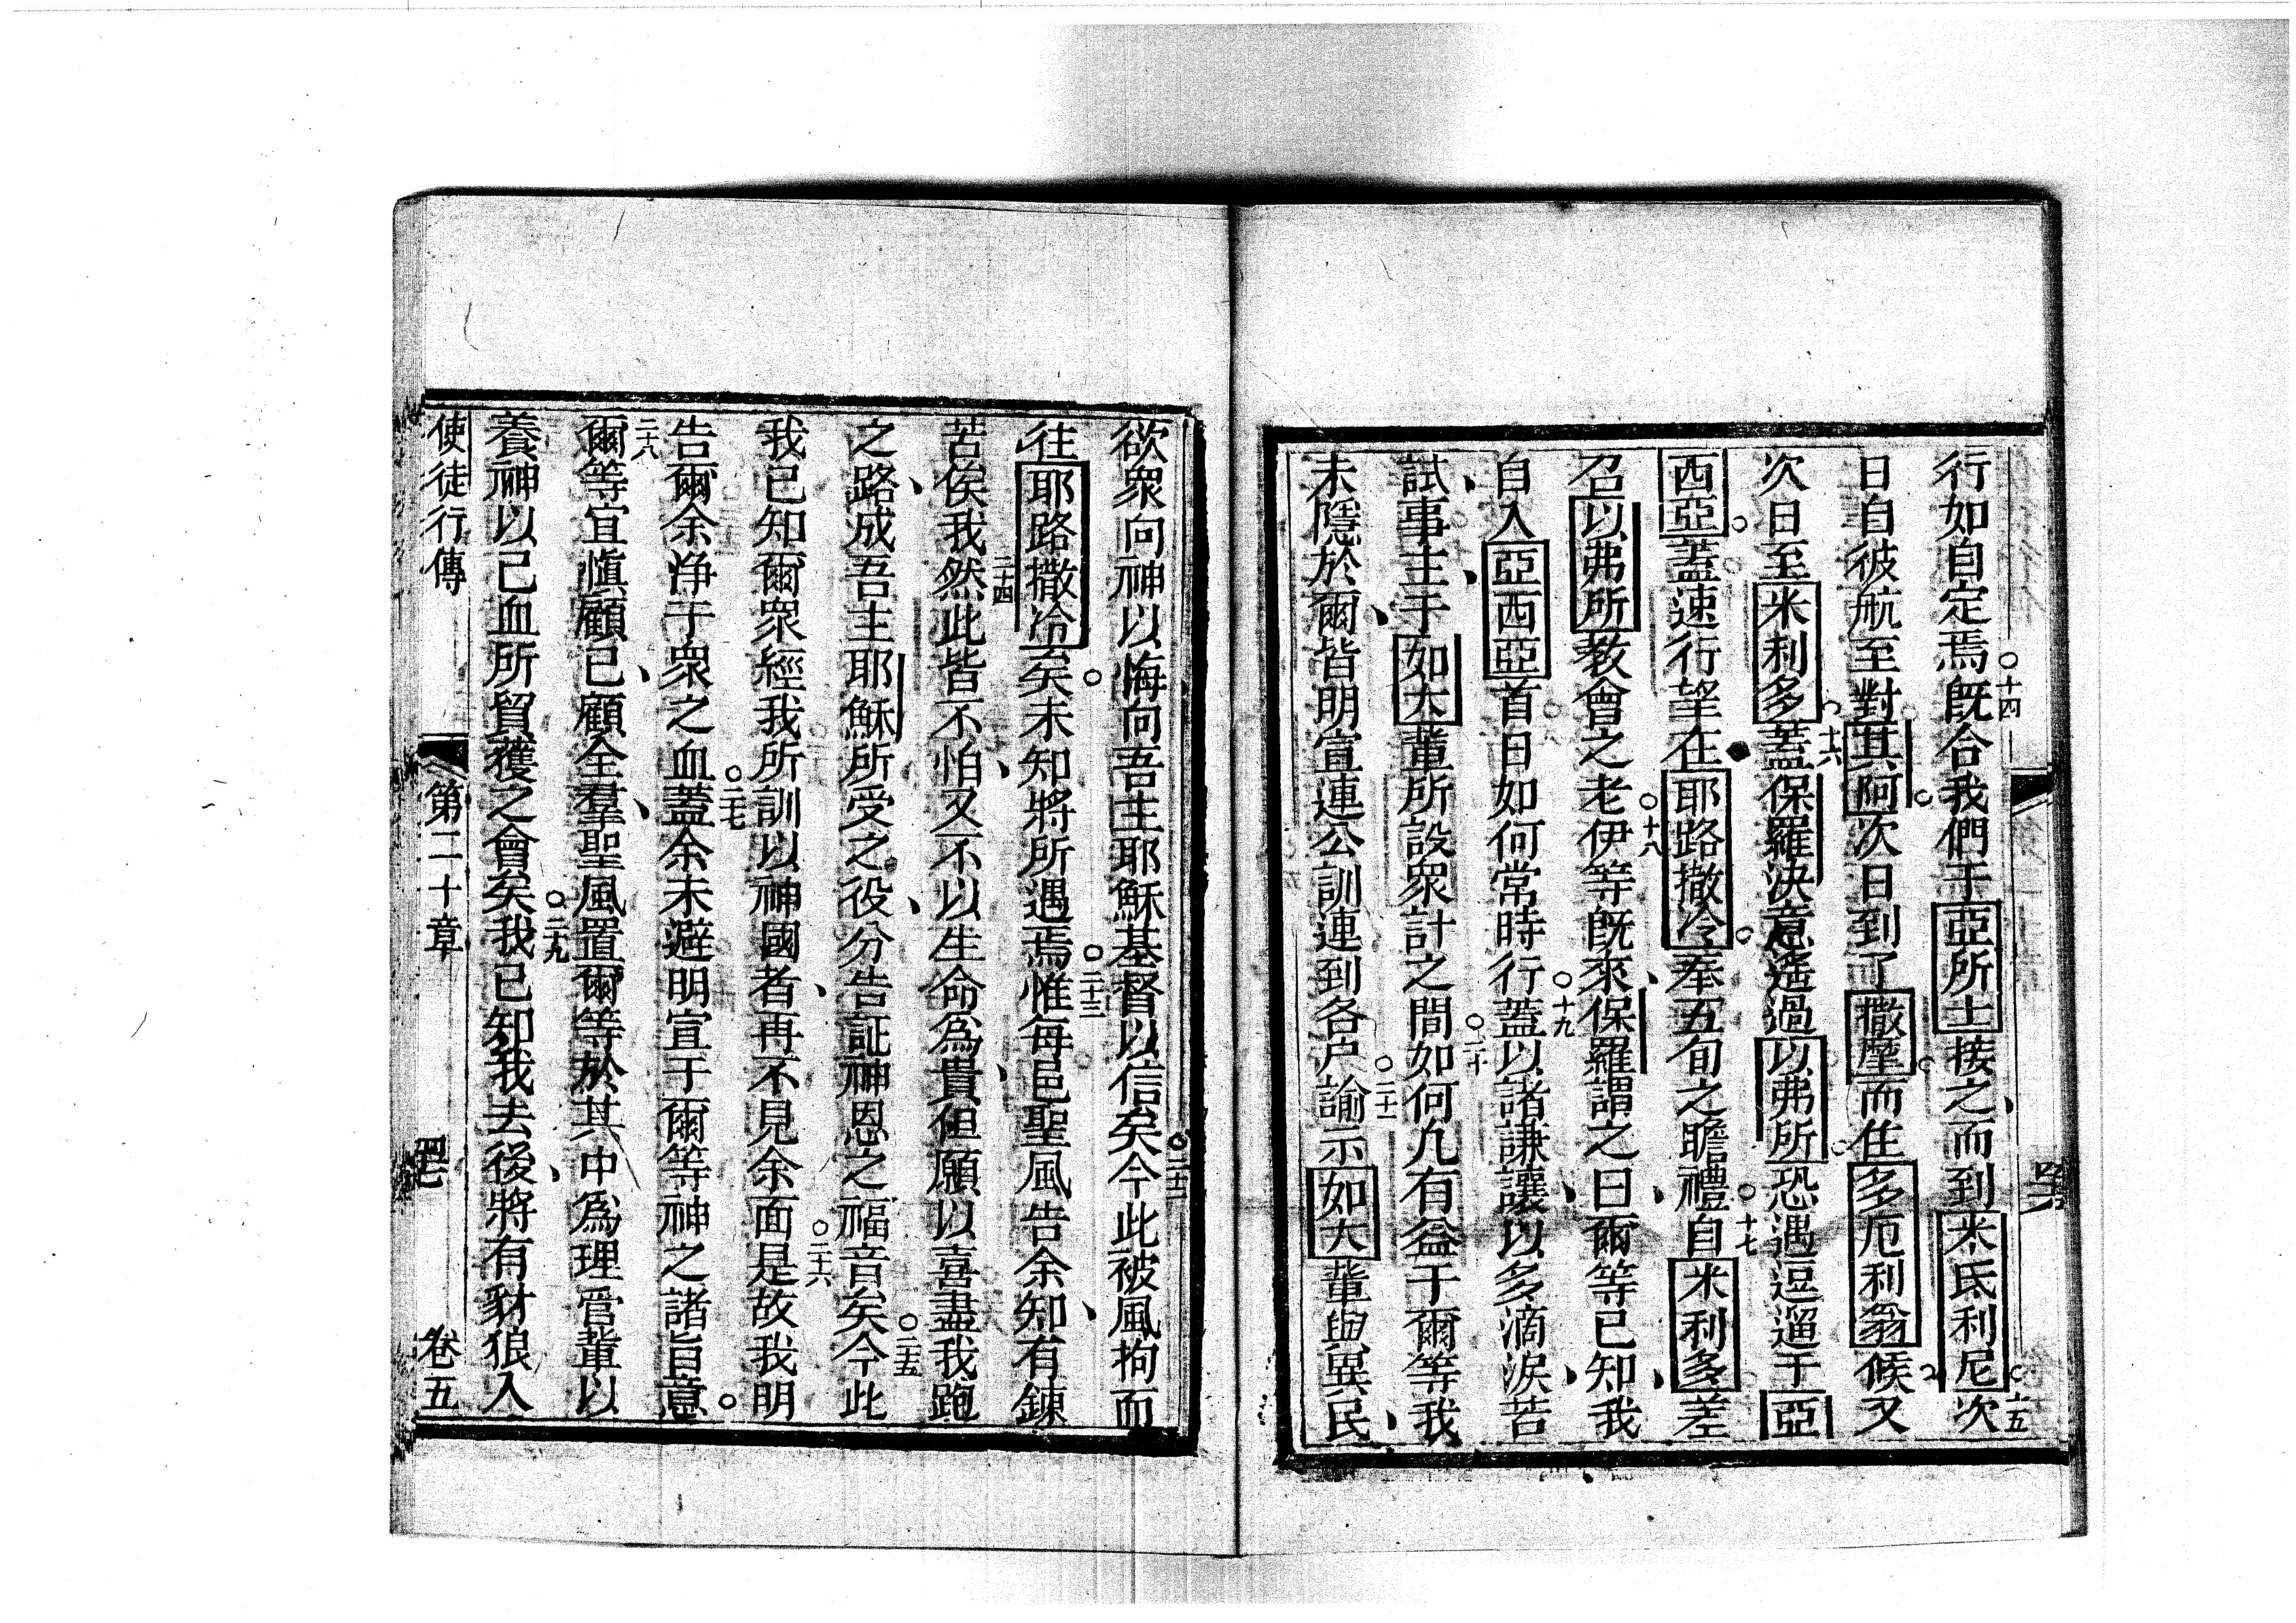 行如自定焉○十四既合我們于亞所士接之、而到米氐利尼○十五次
日自彼航至對其阿○次日到了撒摩○而住多厄利翁候又
次日至米利多○十六蓋保羅決意遙過以弗所○恐遇逗遛于亞
西亞○蓋速行望在耶路撒冷○奉五旬之瞻禮○十七自米利多差
召以弗所教會之老○十八伊等既來、保羅謂之曰、爾等已知、我
自入亞西亞首日如何常時行○十九蓋以諸謙讓、以多滴淚、苦
試、事主、于如大輩所設衆計之間○二十如何凡有益于爾等我
未隱於爾、皆明宣連公訓連到各戶○二十一諭示如大輩與異民、
欲衆向神以悔向吾主耶穌基督以信矣○二十二今此被風拘而
往耶路撒冷矣○未知將所遇焉○二十三惟每邑聖風告余知、有鍊
苦俟我二十四然此皆不怕、又不以生命為貴、但願以喜盡我跑
之路、成吾主耶穌所受之役、分告証神恩之福音矣○二十五今此
我已知爾衆經我所訓以神國者、再不見余面○二十六是故我明
告爾余净于衆之血○二十七蓋余未避明宣于爾等神之諸旨意○
二十八爾等宜慎顧己、顧全羣、聖風置爾等於其中為理官輩以
養神以己血所買獲之會矣○二十九我已知我去後、將有豺狼入
使徒行傳 第二十章 四七 卷五